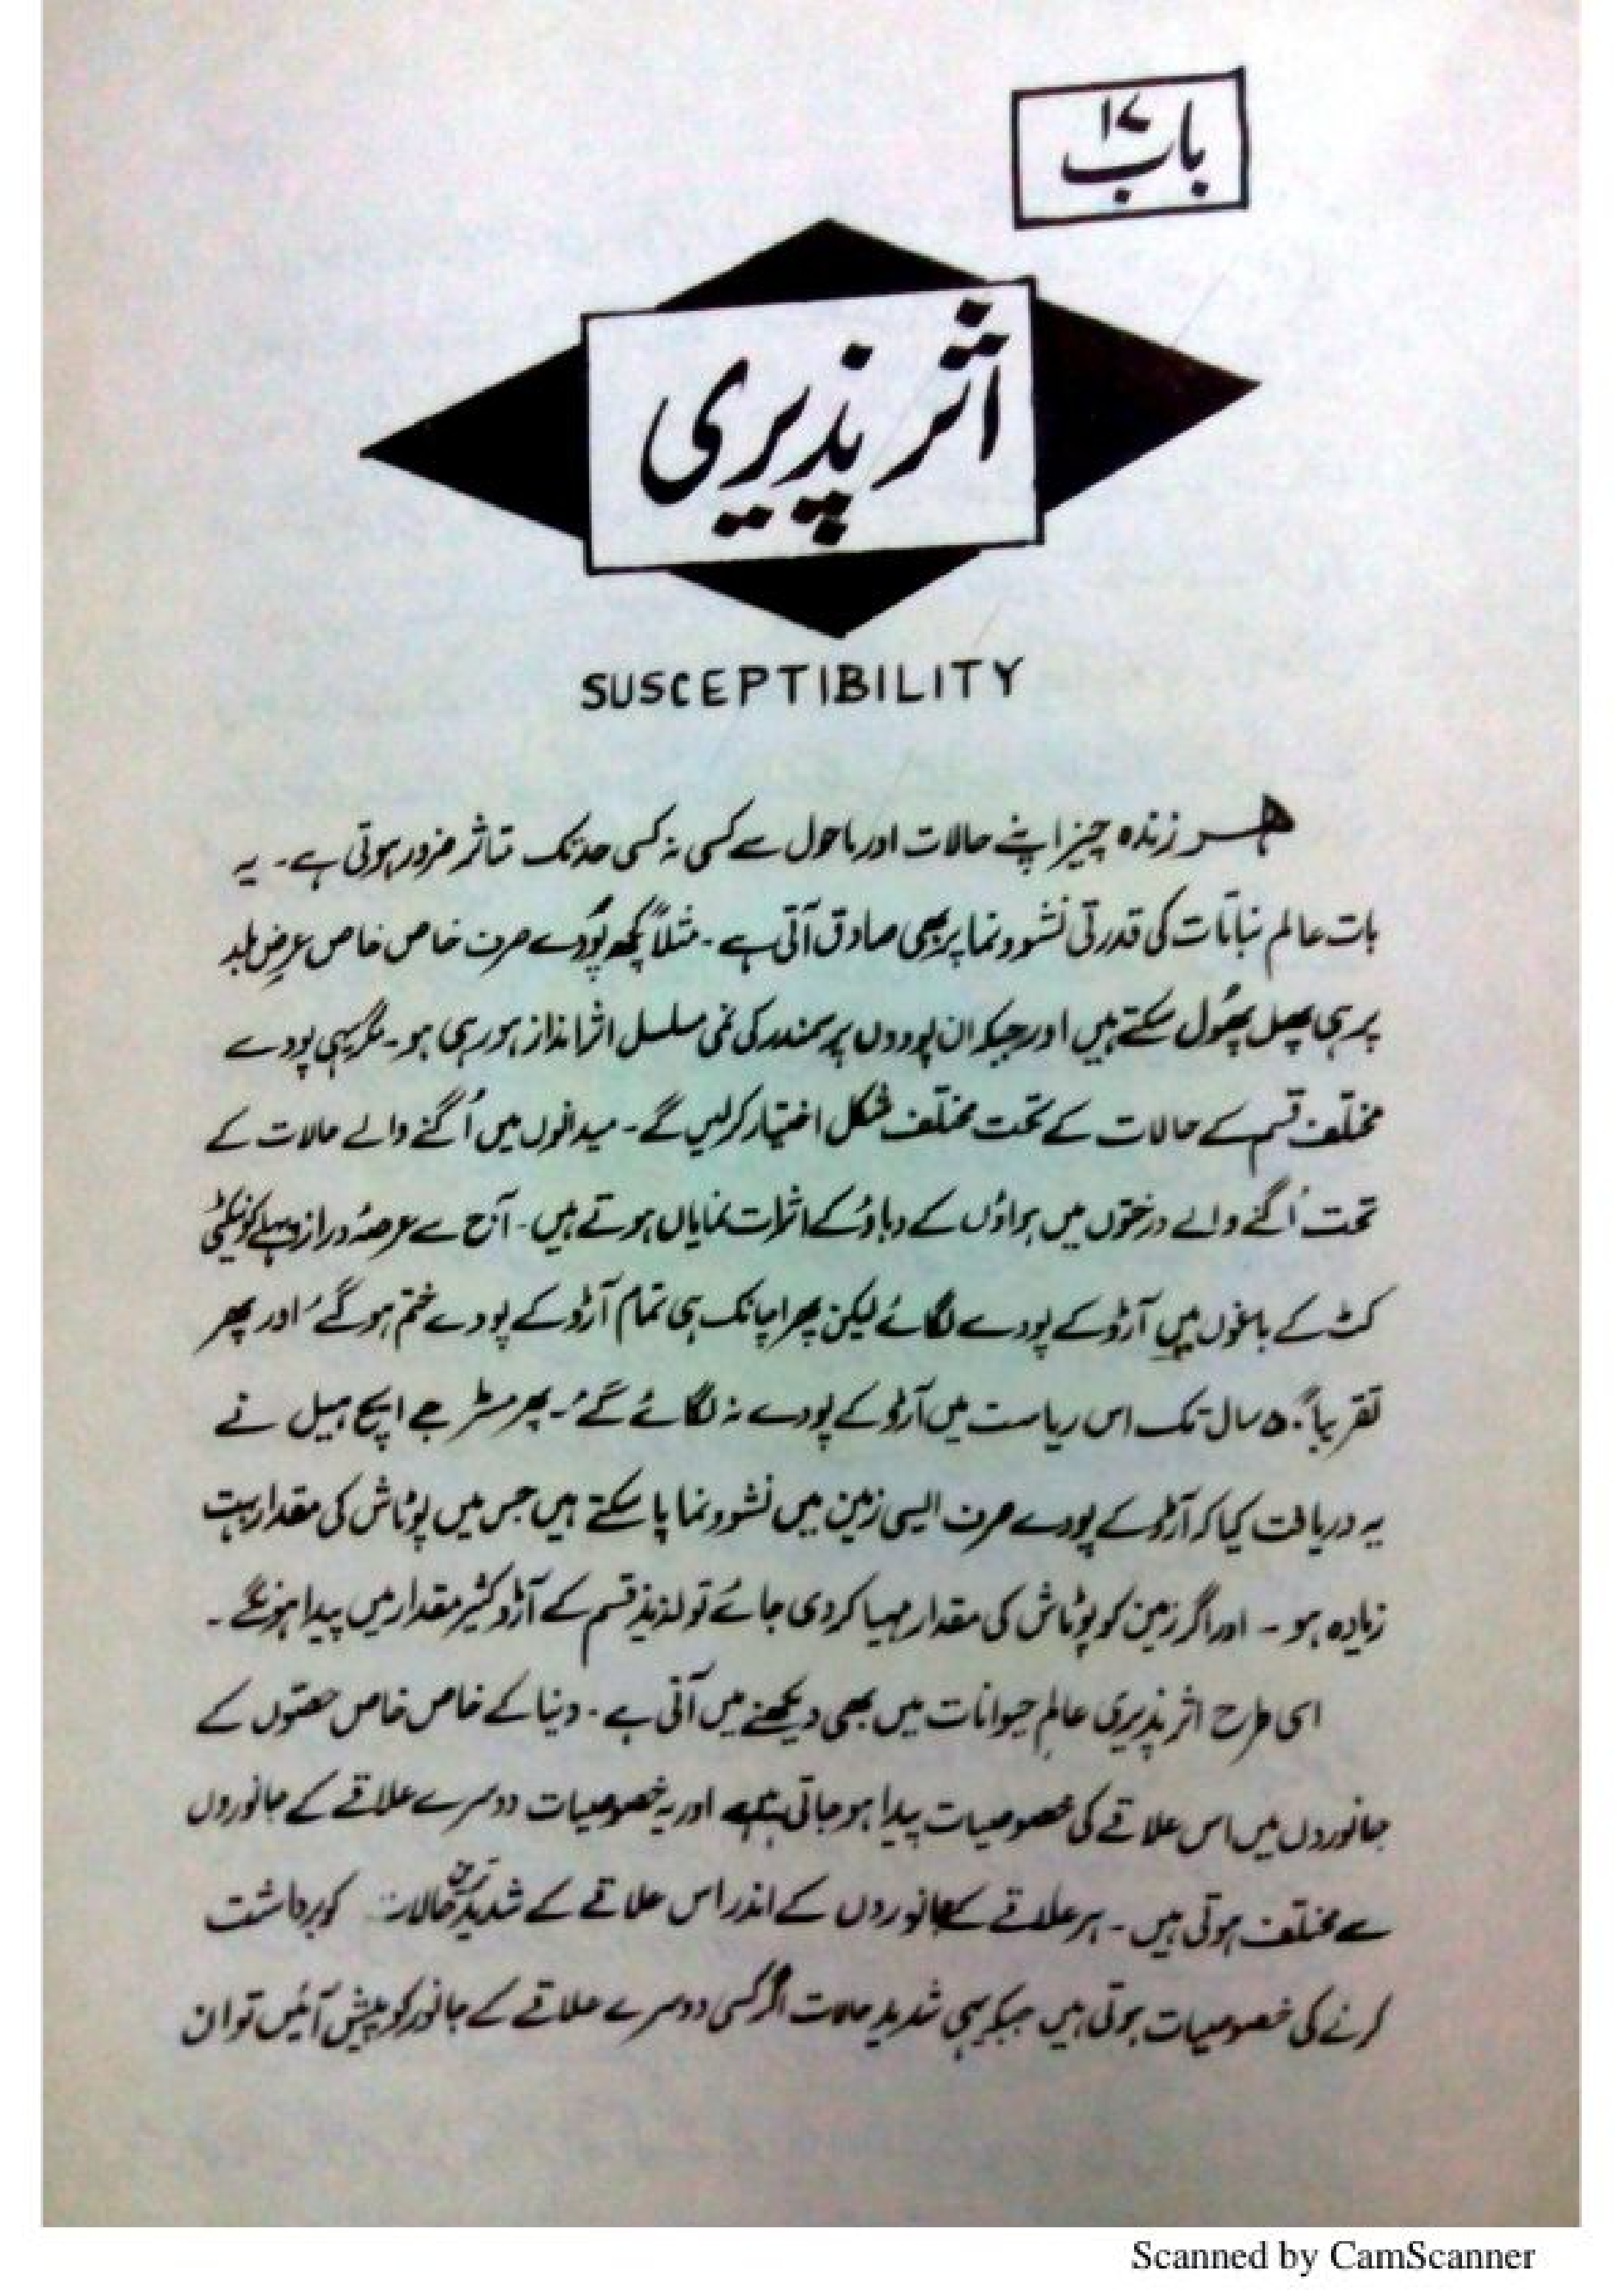 باب ۱۷
اثر پذیری
SUSCEPTIBILITY
ہر زندہ چیز اپنے حالات اور ماحول سے کسی نہ کسی حد تک متاثر ضرور ہوتی ہے۔ یہ
بات عالم نباتات کی قدرتی نشوونما پر بھی صادق آتی ہے۔ مثلاً کچھ پودے صرف خاص خاص عرض بلد
پر ہی پھل پھُول سکتے ہیں اور جبکہ ان پودوں پر سمندر کی نمی مسلسل اثرانداز ہو رہی ہو۔ مگر یہی پودے
مختلف قسم کے حالات کے تحت مختلف شکل اختیار کرلیں گے۔ میدانوں میں اُگنے والے حالات کے
تحت اُگنے والے درختوں میں ہواؤں کے دباؤ کے اثرات نمایاں ہوتے ہیں۔ آج سے عرصۂ دراز پہلے کونیکٹی
کٹ کے باغوں میں آڑو کے پودے لگائے لیکن پھر اچانک ہی تمام آڑو کے پودے ختم ہوگئے اور پھر
تقریباً ۵۰ سال تک اس ریاست میں آڑو کے پودے نہ لگائے گئے۔ پھر مسٹر جے ایچ ہیل نے
یہ دریافت کیا کہ آڑو کے پودے صرف ایسی زمین میں نشوونما پا سکتے ہیں جس میں پوٹاش کی مقدار بہت
زیادہ ہو۔ اور اگر زمین کو پوٹاش کی مقدار مہیا کر دی جائے تو لذیذ قسم کے آڑو کثیر مقدار میں پیدا ہونگے۔
اسی طرح اثر پذیری عالمِ حیوانات میں بھی دیکھنے میں آتی ہے۔ دنیا کے خاص خاص حصّوں کے
جانوروں میں اس علاقے کی خصوصیات پیدا ہو جاتی ہیں اور یہ خصوصیات دوسرے علاقے کے جانوروں
سے مختلف ہوتی ہیں۔ ہر علاقے کے جانوروں کے اندر اس علاقے کے شدید ترین حالات کو برداشت
کرنے کی خصوصیات ہوتی ہیں جبکہ یہی شدید حالات اگر کسی دوسرے علاقے کے جانور کو پیش آئیں تو ان
Scanned by CamScanner